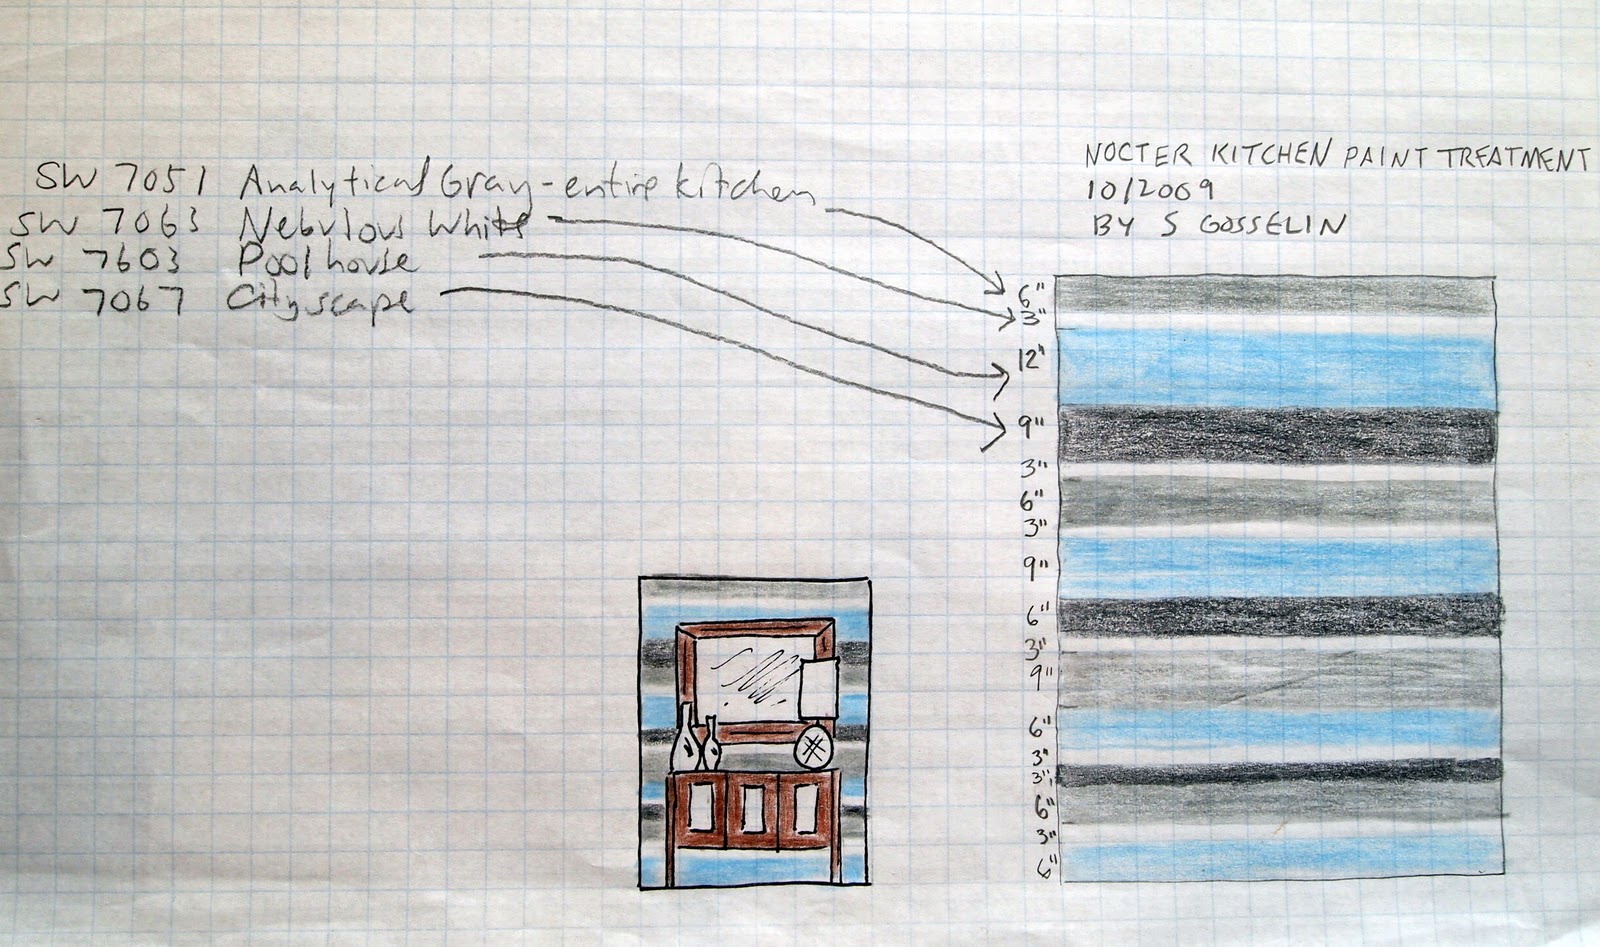 SW 7051 Analytical Gray - entire kitchen
SW 7063 Nebulous White
SW 7603 Poolhouse
SW 7067 Cityscape
NOCTER KITCHEN PAINT TREATMENT
10/2009
BY S GOSSELIN
6"
3"
12"
9"
3"
6"
3"
9"
6"
3"
9"
6"
3"
3"
6"
3"
6"